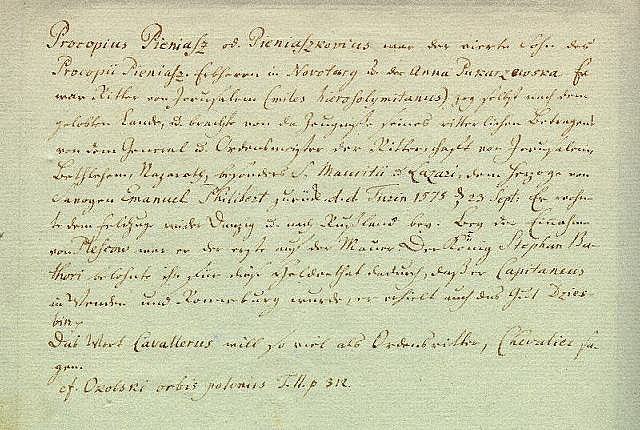 Procopius Pieniasz od. Pieniaszkovius war der vierte Sohn des
Procopii Pieniasz. Erbherrn in Novotarg u. der Anna Pukarzewska. Er
war Ritter von Jerusalem (miles hierosolymitanus) zog selbst nach dem
gelobten Lande, u. brachte von da Zeugnisse seines ritterlichen Betragens
von dem General u. Ordensmeister der Ritterschaft von Jerusalem,
Bethlehem, Nazareth, besonders S. Mauritii u. Lazari, dem Herzoge von
Savoyen Emanuel Philibert zurück d.d. Turin 1575 d 23 Sept. Er wohn-
te dem Feldzuge wider Danzig u. nach Rußland bey. Bey der Einnahme
von Plescow war er der erste auf der Mauer. Der König Stephan Ba-
thori belohnte ihn für diese Heldenthat dadurch, daß er Capitaneus
in Wenden und Ronneburg wurde, er erhielt auch das Gut Dzies-
bin.
Das Wort Cavallerus will so viel als Ordensritter, Chevalier sa-
gen.
cf. Okolski orbis polonus T. II. p 312.